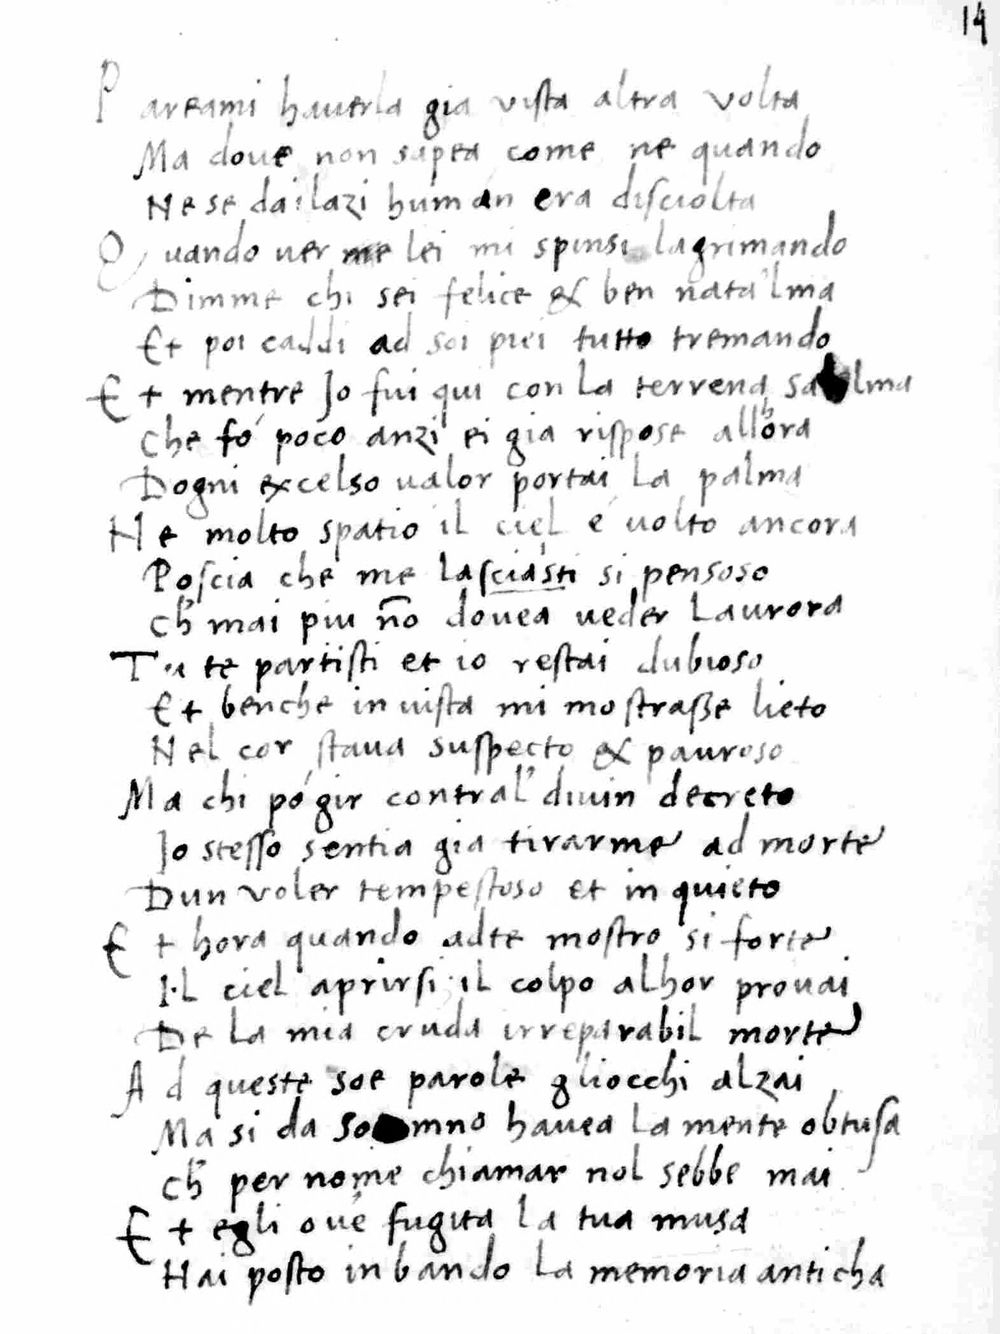 14
Pareami hauerla gia vista altra volta
Ma doue non sapea come ne quando
Ne se dai lazi human era disciolta
Quando uer me lei mi spinsi lagrimando
Dimme chi sei felice & ben nata lma
Et poi caddi ad soi piei tutto tremando
Et mentre Jo fui qui con la terrena salma
Che fo poco anzi ei gia rispose allhora
Dogni excelso ualor portai la palma
Ne molto spatio il ciel e uolto ancora
Poscia che me lasciasti si pensoso
Ch mai piu no douea ueder Laurora
Tu te partisti et io restai dubioso
Et benche in uista mi mostrasse lieto
Nel cor staua suspecto & pauroso
Ma chi po gir contral' diuin decreto
Jo stesso sentia gia tirarme ad morte
Dun voler tempestoso et in quieto
Et hora quando adte mostro si forte
Il ciel aprirsi il colpo alhor prouai
De la mia cruda irreparabil morte
Ad queste soe parole gliocchi alzai
Ma si da somno hauea la mente obtusa
Ch per nome chiamar nol sebbe mai
Et egli oue fugita la tua musa
Hai posto in bando la memoria anticha